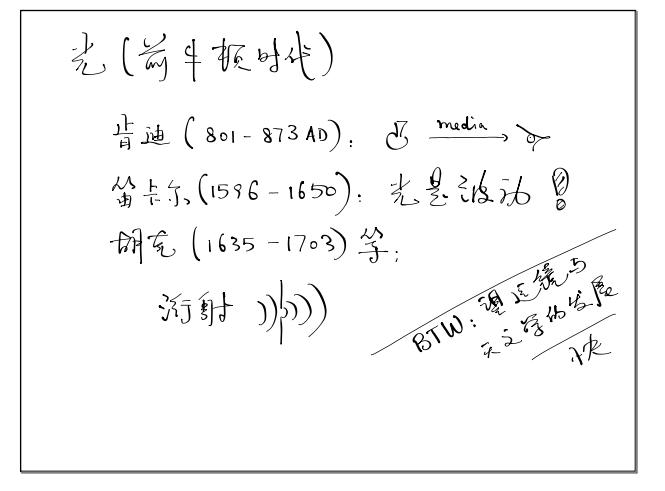 光(前牛顿时代)
肯迪(801-873AD): media
笛卡尔(1596-1650): 光是波动!
胡克(1635-1703)等:
衍射
BTW: 望远镜与
天文学的发展